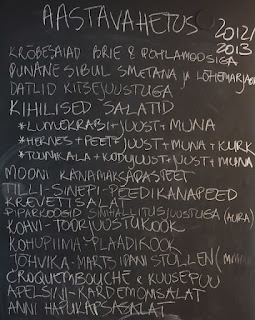 AASTAVAHETUS 2012/
2013
KRÕBESAIAD BRIE & POHLAMOOSIGA
PUNANE SIBUL SMETANA JA LÕHEMARJAGA
DATLID KITSEJUUSTUGA
KIHILISED SALATID
*LUMEKRABI+JUUST+MUNA
*HERNES+PEET+JUUST+MUNA+KURK
*TUUNIKALA+KODUJUUST+JUUST+MUNA
MOONI KANAMAKSAPASTEET
TILLI-SINEPI-PEEDIKANAPEED
KREVETISALAT
PIPARKOOGID SINIHALLITUSJUUSTUGA (AURA)
KOHVI-TOORJUUSTUKOOK
KOHUPIIMA-PLAADIKOOK
TOHVIKA-MARTSIPANISTOLLEN
CROQUEMBOUCHE & KUUSEPUU
APELSINI-KARDEMOMSALAT
ANNI HAPUKAPSASALAT